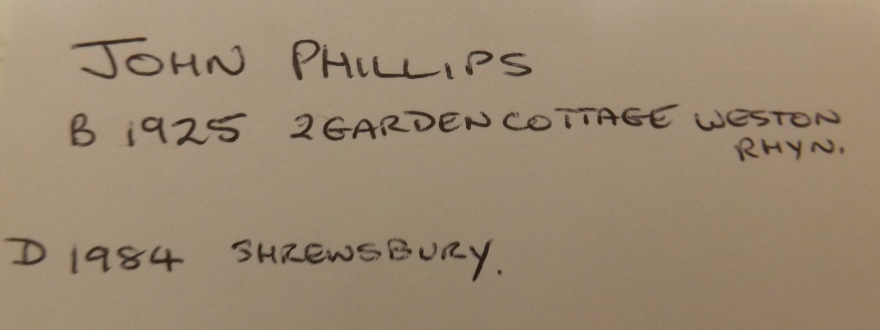 JOHN PHILLIPS
B 1925 2 GARDEN COTTAGE WESTON
RHYN.
D 1984 SHREWSBURY.